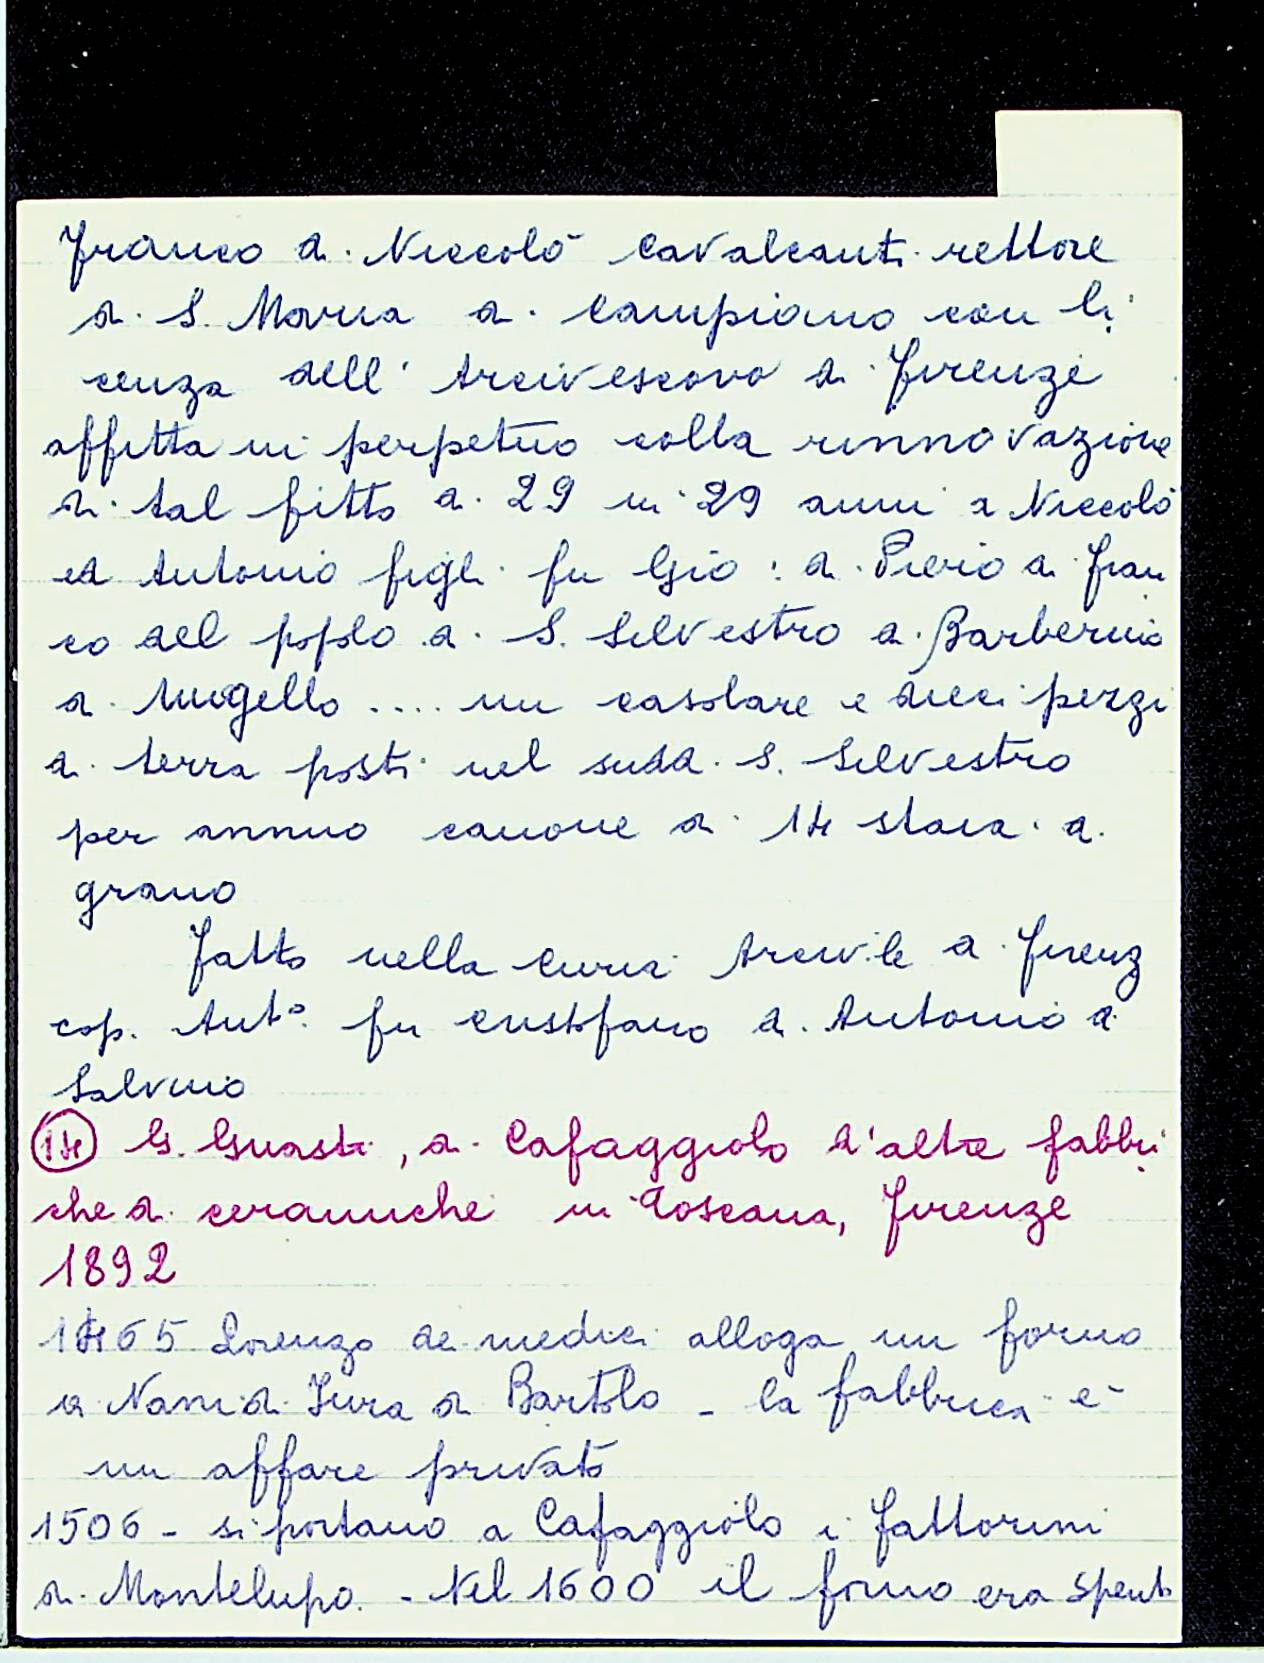 Franco di Niccolò Cavalcanti rettore
di S. Maria di Campiano con li
cenza dell'Arcivescovo di Firenze
affitta in perpetuo colla rinnovazione
di tal fitto di 29 in 29 anni a Niccolò
ed Antonio figli fu Gio: di Piero di Fran
co del popolo di S. Silvestro a Barberino
di Mugello .... un casolare e dieci pezzi
di terra posti nel sudd. S. Silvestro
per annuo canone di 14 staia di
grano
Fatto nella Curia Arciv.le di Firenz
cop. Ant.º fu Cristofano di Antonio di
Salvino
14 G. Guasti, di Cafaggiolo d'altre fabbri
che di ceramiche in Toscana, Firenze
1892
1465 Lorenzo de medici alloga un forno
a Nanni di Iura di Bartolo - la fabbrica è
un affare privato
1506 - si portano a Cafaggiolo i fattorini
di Montelupo. - Nel 1600 il forno era spento